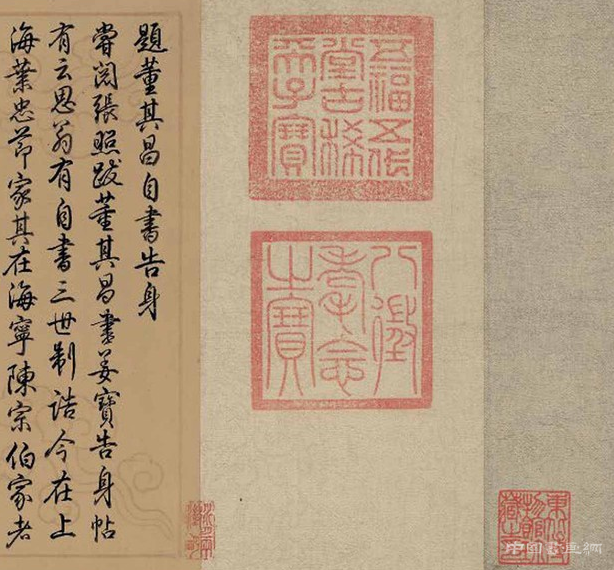 五福五代
堂古稀
天子寶
八徵
耄念
之寶
題董其昌自書告身
嘗閱張照跋董其昌書姜寶告身帖
有云思翁有自書三世制誥今在上
海葉忠節家其在海寧陳宗伯家者
中国書画網